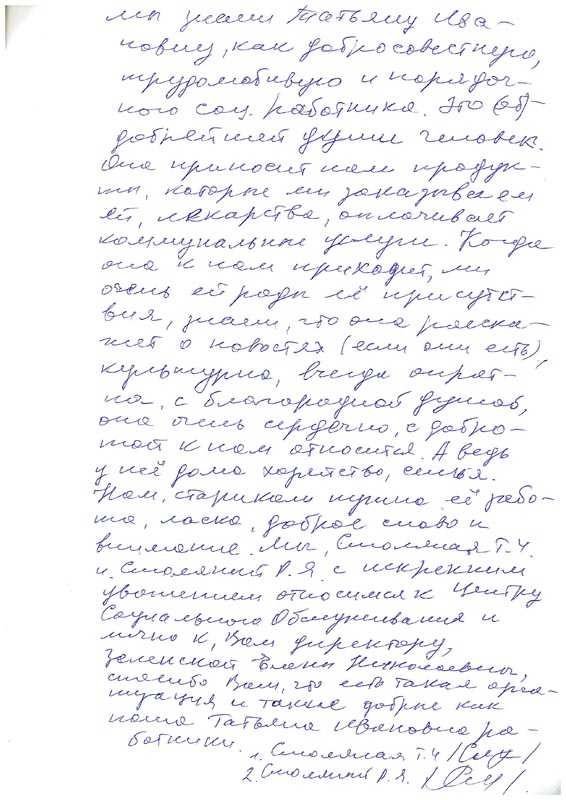 мы знаем Татьяну Ива-
новну, как добросовестную,
трудолюбивую и порядоч-
ного соц. работника. Это
добрейшей души человек.
Она приносит нам продук-
ты, которые мы заказываем
ей, лекарства, оплачивает
коммунальные услуги. Когда
она к нам приходит, мы
очень ей рады её присутст-
вия, знаем, что она расска-
жет о новостях (если они есть),
культурна, всегда опрят-
на, с благородной душой,
она очень сердечно, с добро-
той к нам относится. А ведь
у неё дома хозяйство, семья.
Нам, старикам нужна её рабо-
та, ласка, доброе слово и
внимание. Мы, Смоляная Т.Ч.
и Смоляний Р.Я. с искренним
уважением относимся к Центру
Социального Обслуживания и
лично к, Вам директору,
Зеленской Елени Николаевны,
спасибо Вам, что есть такая орга-
низация и такие добрые как
наша Татьяна Ивановна ра-
ботники.
1. Смоляная Т.Ч
2. Смоляний Р.Я.